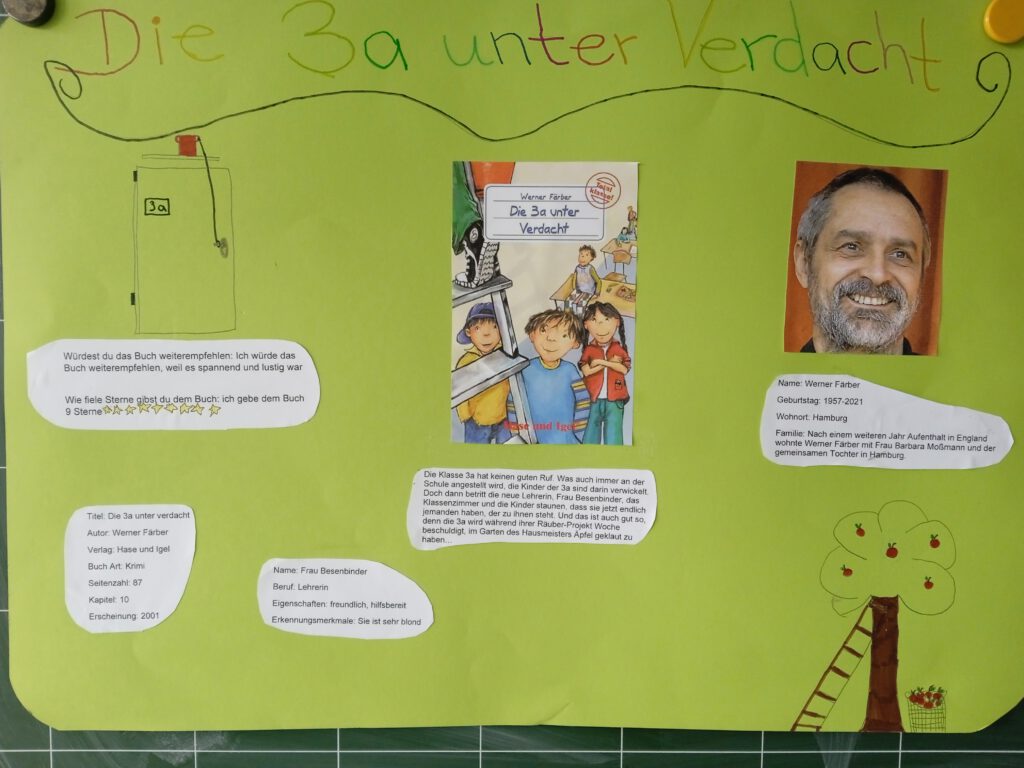 Die 3a unter Verdacht
3a
Würdest du das Buch weiterempfehlen: Ich würde das
Buch weiterempfehlen, weil es spannend und lustig war
Wie fiele Sterne gibst du dem Buch: ich gebe dem Buch
9 Sterne
Total
klasse!
Werner Färber
Die 3a unter
Verdacht
Hase und Igel
Name: Werner Färber
Geburtstag: 1957-2021
Wohnort: Hamburg
Familie: Nach einem weiteren Jahr Aufenthalt in England
wohnte Werner Färber mit Frau Barbara Moßmann und der
gemeinsamen Tochter in Hamburg.
Die Klasse 3a hat keinen guten Ruf. Was auch immer an der
Schule angestellt wird, die Kinder der 3a sind darin verwickelt.
Doch dann betritt die neue Lehrerin, Frau Besenbinder, das
Klassenzimmer und die Kinder staunen, dass sie jetzt endlich
jemanden haben, der zu ihnen steht. Und das ist auch gut so,
denn die 3a wird während ihrer Räuber-Projekt Woche
beschuldigt, im Garten des Hausmeisters Äpfel geklaut zu
haben...
Titel: Die 3a unter verdacht
Autor: Werner Färber
Verlag: Hase und Igel
Buch Art: Krimi
Seitenzahl: 87
Kapitel: 10
Erscheinung: 2001
Name: Frau Besenbinder
Beruf: Lehrerin
Eigenschaften: freundlich, hilfsbereit
Erkennungsmerkmale: Sie ist sehr blond